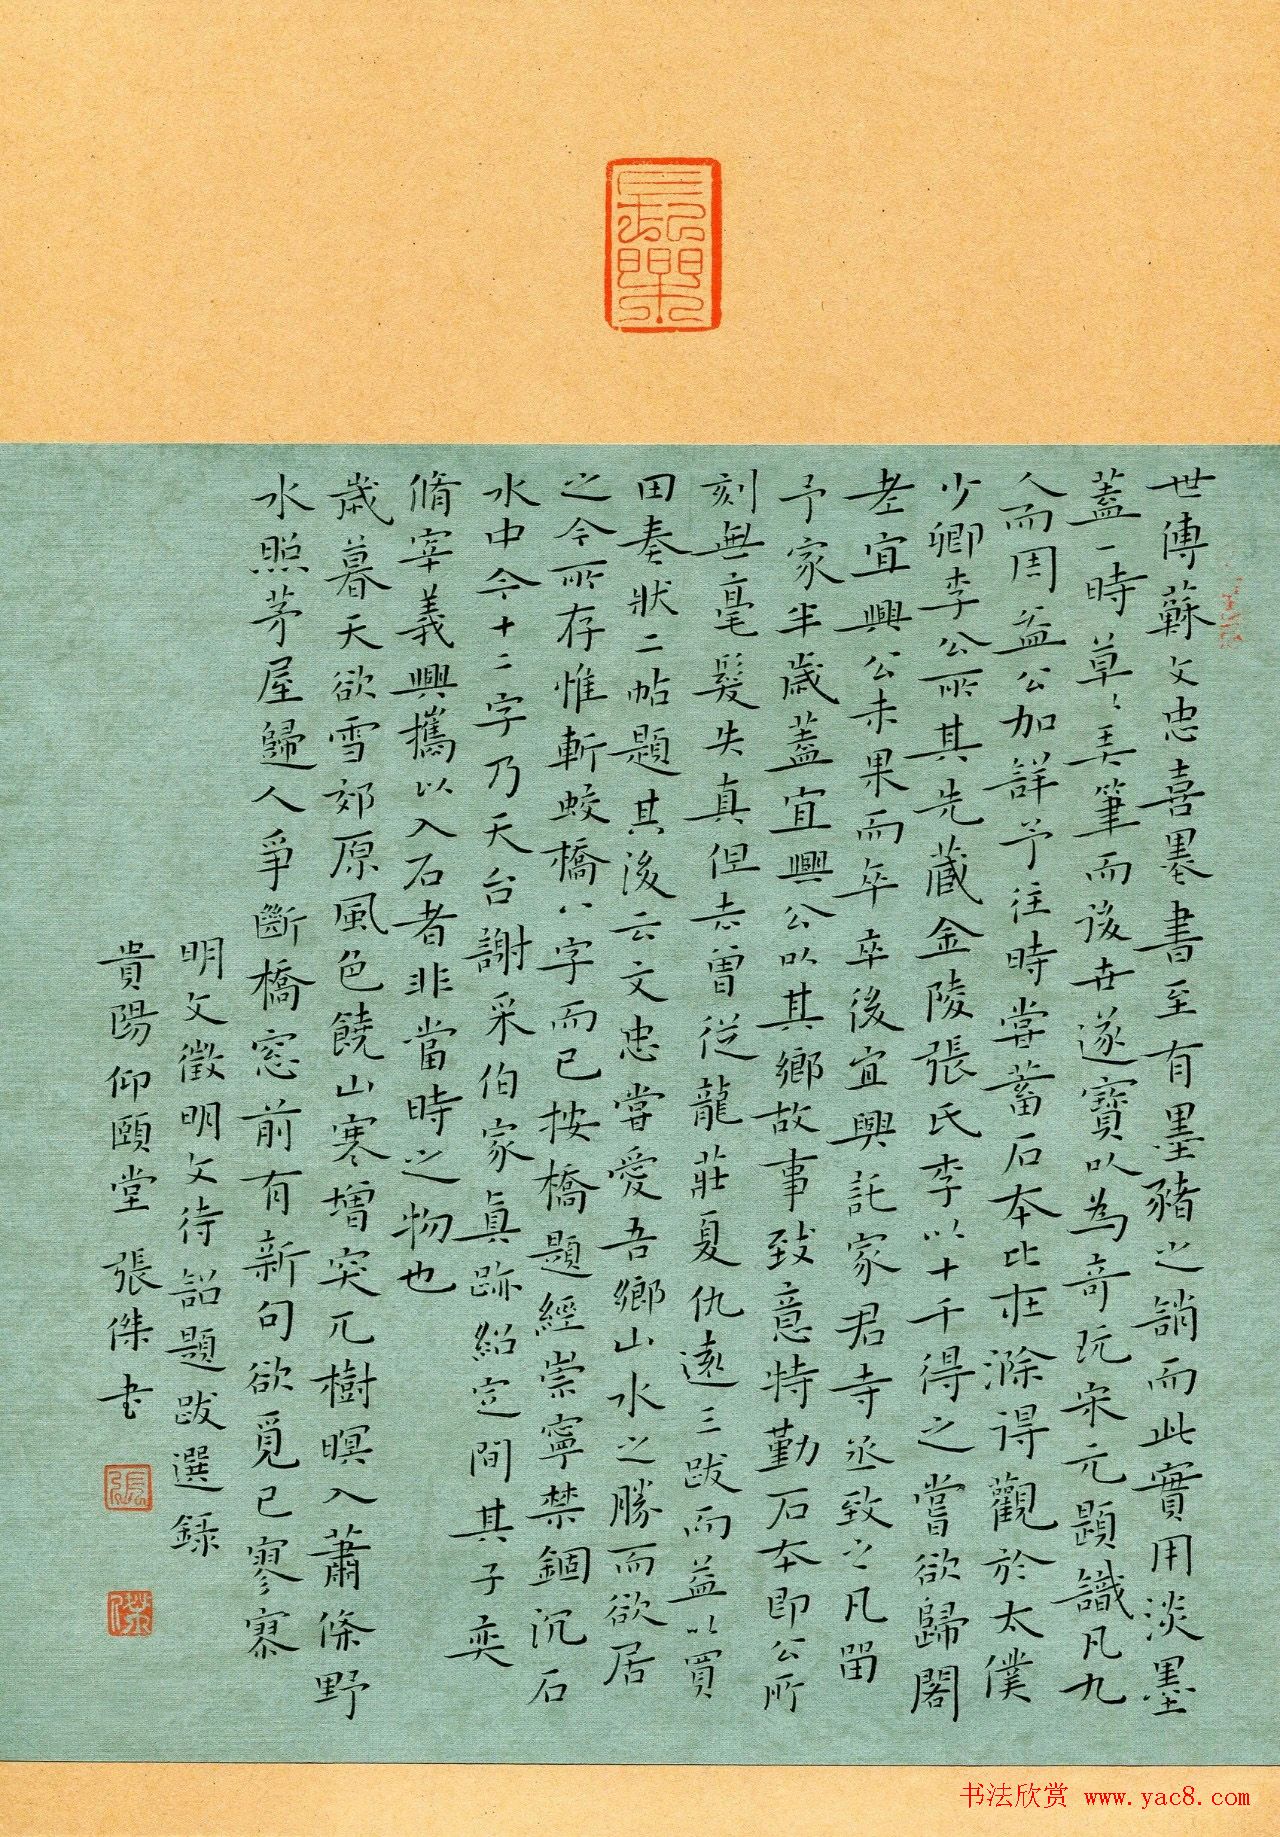 長樂
世傳蘇文忠喜墨書至有墨豬之誚而此實用淡墨
蓋一時草〻弄筆而後世遂寶以為奇玩宋元題識凡九
人而周益公加詳予往時嘗蓄石本比在滁得觀於太僕
少卿李公所其先藏金陵張氏李以十千得之嘗欲歸閣
老宜興公未果而卒卒後宜興託家君寺丞致之凡留
予家半歲蓋宜興公以其鄉故事致意特勤石本即公所
刻無毫髮失真但去曾從龍莊夏仇遠三跋而益以買
田奏狀二帖題其後云文忠嘗愛吾鄉山水之勝而欲居
之今所存惟斬蛟橋八字而已按橋題經崇寧禁錮沉石
水中今十二字乃天台謝采伯家真跡紹定間其子奕
脩宰義興攜以入石者非當時之物也
歲暮天欲雪郊原風色饒山寒增突兀樹暝入蕭條野
水照茅屋歸人爭斷橋窓前有新句欲覓已寥寥
明文徵明文待詔題跋選錄
貴陽仰頤堂 張傑书
張
傑
书法欣赏 www.yac8.com